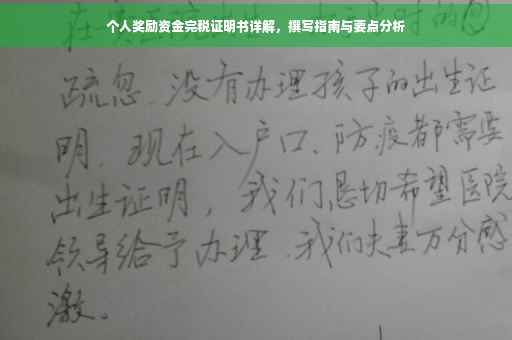 个人奖励资金完税证明书详解，撰写指南与要点分析
疏忽、没有办理孩子的出生证
明、现在入户口、防疫都需要
出生证明，我们恳切希望医院
领导给予办理、我们夫妻万分感
激。